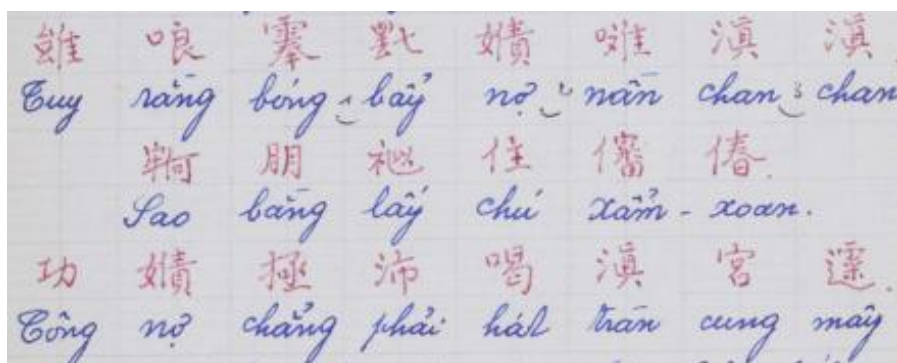 雖 哴 嫧 滇 滇
Tuy rằng bóng bẩy nợ nần chan chan
朋 祂 住 偆.
Sao bằng lấy chú xẩm - xoan.
功 嫧 極 沛 喝 滇 宮
Công nợ chẳng phải hát tràn cung mây